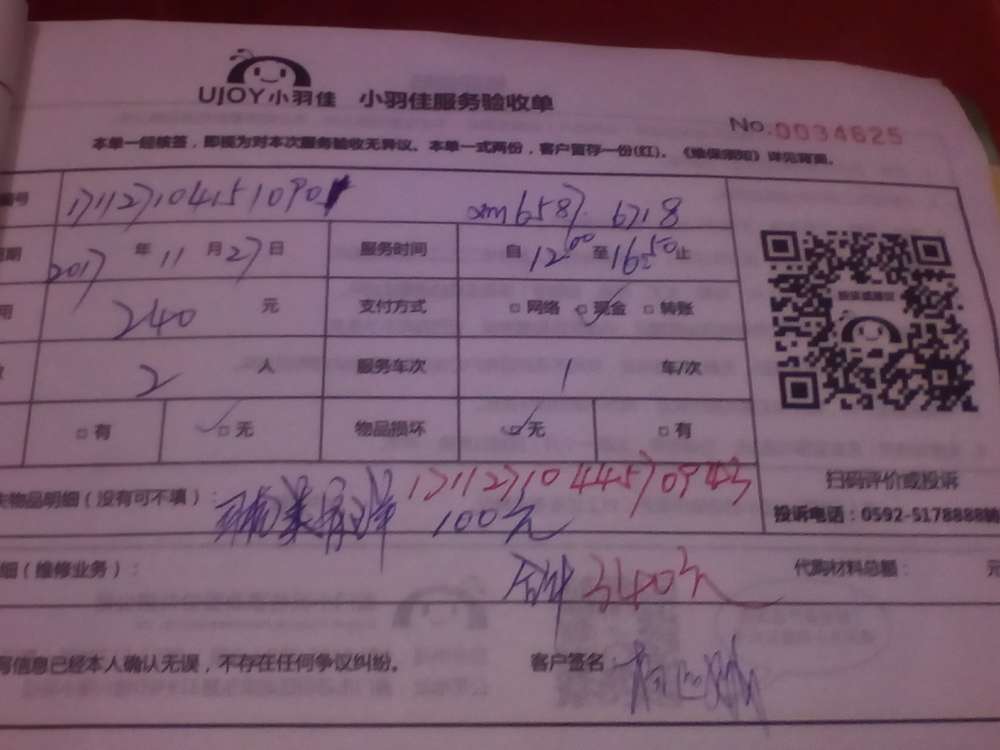 UJOY小羽佳 小羽佳服务验收单
No.0034625
本单一经核签，即视为对本次服务验收无异议。本单一式两份，客户留存一份(红)。《维保须知》详见背面。
编号 17112710415109 xm6587. 6718
期 2017 年 11 月 27 日 服务时间 自 12:00 至 16:50 止
用 240 元 支付方式 □网络 □现金 □转账
数 2 人 服务车次 1 车/次
□有 □无 物品损坏 □无 □有
扫码评价或投诉
投诉电话：0592-5178888转
失物品明细（没有可不填）： 171127104457094
100元
细（维修业务）： 合计 340元 代购材料总额： 元
写信息已经本人确认无误，不存在任何争议纠纷。 客户签名：